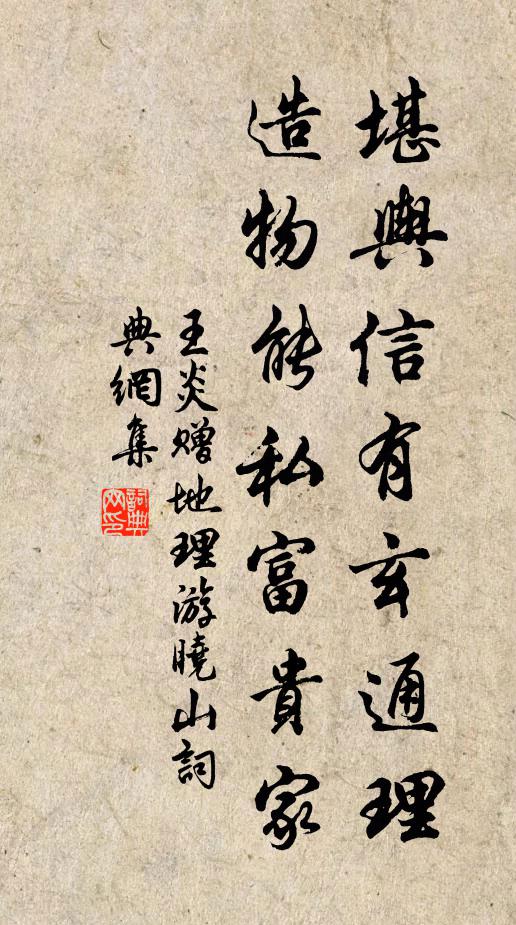 堪輿信有玄通理
造物能私富貴家
王炎贈地理游曉山詞
典網集
詞典网印